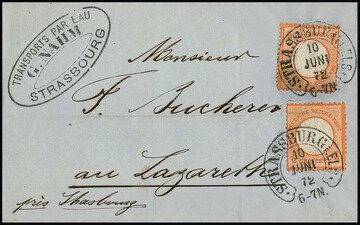 TRANSPORTS PAR EAU
G. NAHM
STRASBOURG
Monsieur
F. Bucherer
au Lazareth
près Strasbourg
STRASSBURG I. ELS.
10
JUNI
72
6-7N.
STRASSBURG I. ELS.
10
JUNI
72
6-7N.